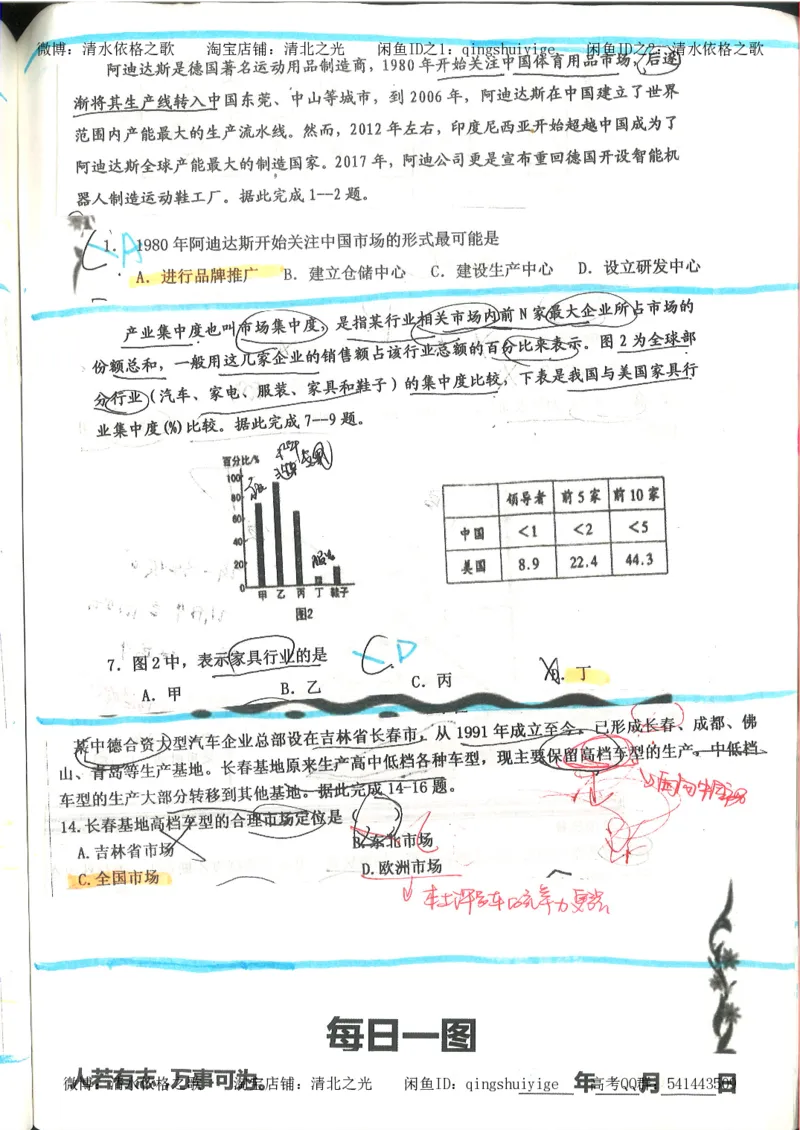 微博：清水依格之歌　　淘宝店铺：清北之光　　闲鱼ID之1：qingshuiyige　　闲鱼ID之2：清水依格之歌
阿迪达斯是德国著名运动用品制造商，1980年开始关注中国体育用品市场，后逐
渐将其生产线转入中国东莞、中山等城市，到2006年，阿迪达斯在中国建立了世界
范围内产能最大的生产流水线。然而，2012年左右，印度尼西亚开始超越中国成为了
阿迪达斯全球产能最大的制造国家。2017年，阿迪公司更是宣布重回德国开设智能机
器人制造运动鞋工厂。据此完成1--2题。
1. A 1980年阿迪达斯开始关注中国市场的形式最可能是
A．进行品牌推广　B．建立仓储中心　C．建设生产中心　D．设立研发中心
产业集中度也叫市场集中度，是指某行业相关市场内前N家最大企业所占市场的
份额总和，一般用这几家企业的销售额占该行业总额的百分比来表示。图2为全球部
分行业（汽车、家电、服装、家具和鞋子）的集中度比较，下表是我国与美国家具行
业集中度(%)比较。据此完成7--9题。
百分比/%
100
80
60
40
20
0
甲 乙 丙 丁 鞋子
图2
服装
领导者 前5家 前10家
中国 <1 <2 <5
美国 8.9 22.4 44.3
7．图2中，表示家具行业的是 C D
A．甲　B．乙　C．丙　D．丁
某中德合资大型汽车企业总部设在吉林省长春市，从1991年成立至今，已形成长春、成都、佛
山、青岛等生产基地。长春基地原来生产高中低档各种车型，现主要保留高档车型的生产，中低档
车型的生产大部分转移到其他基地。据此完成14-16题。
14.长春基地高档车型的合理市场定位是
A.吉林省市场　B.东北市场
C.全国市场　D.欧洲市场
每日一图
人若有志 万事可为。
微博：清水依格之歌　　淘宝店铺：清北之光　　闲鱼ID：qingshuiyige　　高考QQ群：541443509
年　月　日